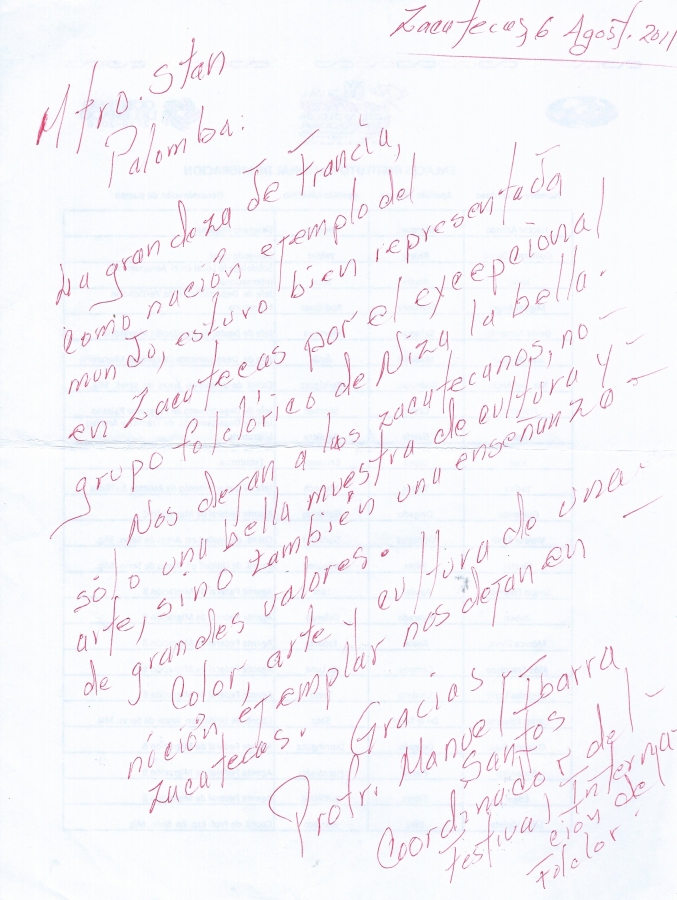 Zacatecas, 6 Agost. 2011
Mtro. Stan
Palomba:
La grandeza de Francia,
como nación ejemplo del
mundo, estuvo bien representada
en Zacatecas por el excepcional
grupo folclórico de Niza la bella.
Nos dejan a los zacatecanos, no
sólo una bella muestra de cultura y
arte, sino también una enseñanza
de grandes valores.
Color, arte y cultura de una
nación ejemplar nos dejan en
Zacatecas. Gracias
Profr. Manuel Ibarra
Santos
Coordinador del
Festival Interna-
ción de
Folclor.